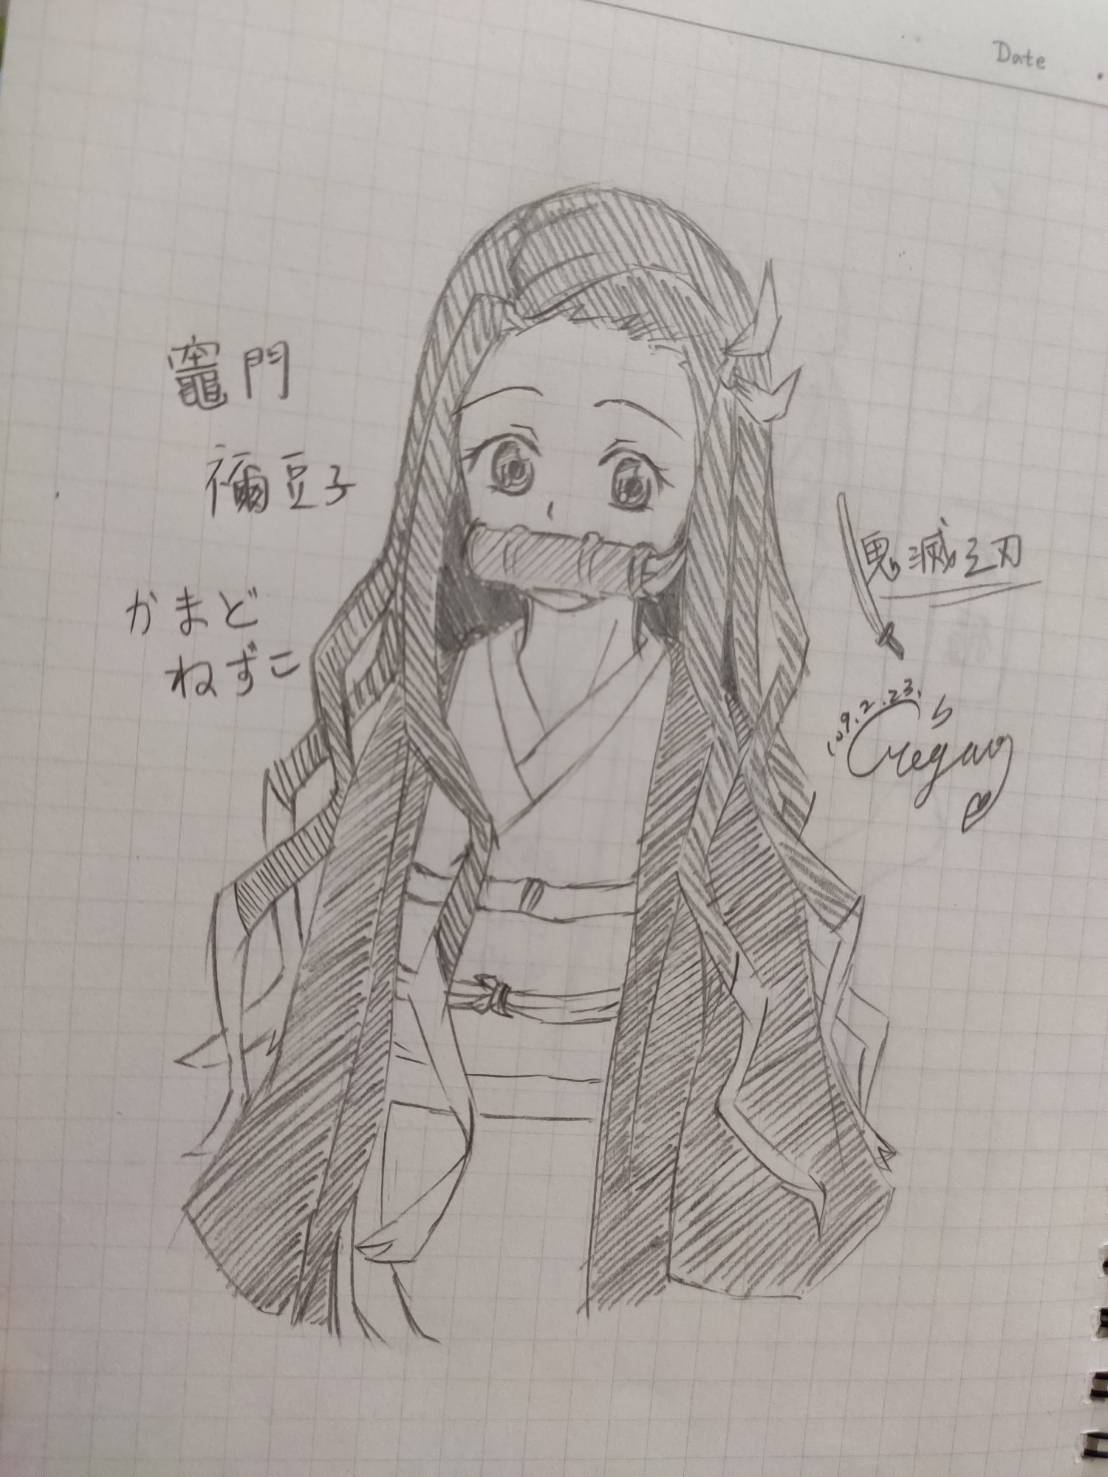 Date
竈門
禰豆子
かまど
ねずこ
鬼滅之刃
109.2.23.